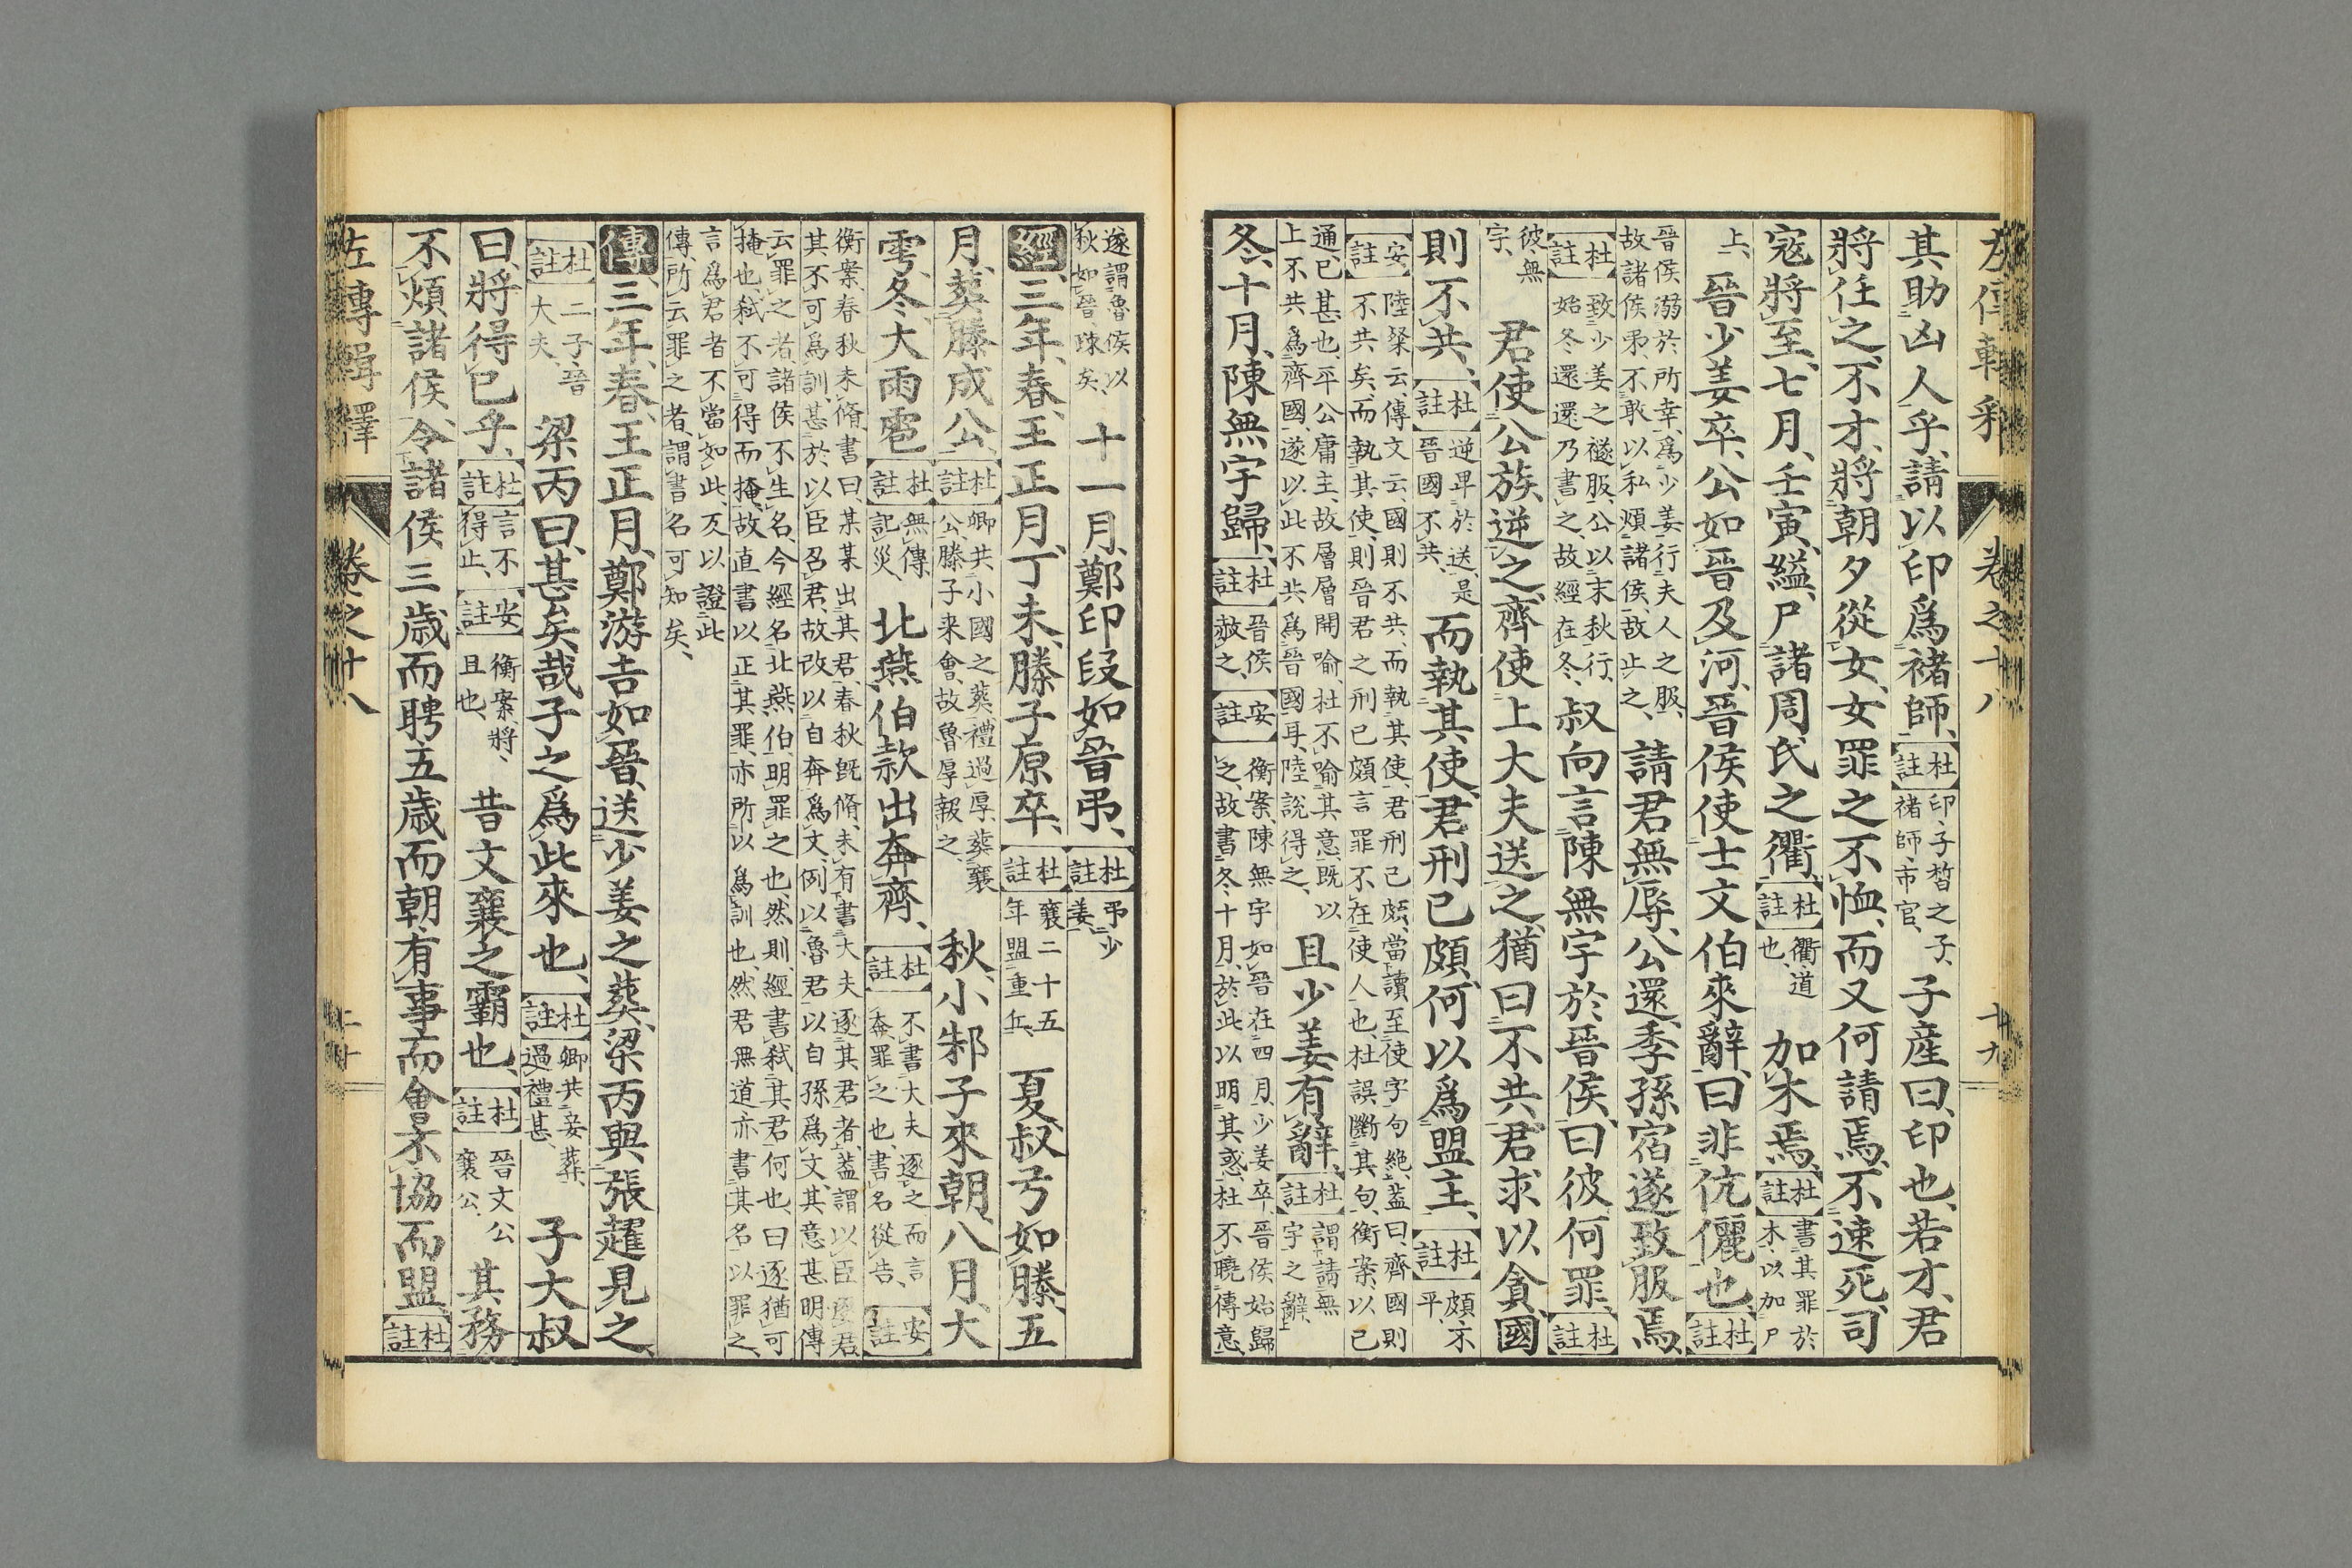 左傳輯釋 卷之十八 十九
其助凶人乎、請以印爲褚師、【杜註】印、子晳之子、褚師、市官、子產曰、印也、若才、君
將任之、不才、將朝夕從女、女罪之不恤、而又何請焉、不速死、司
寇將至、七月、壬寅、縊、尸諸周氏之衢、【杜註】衢、道也、加木焉、【杜註】書其罪於木、以加尸
上、晉少姜卒、公如晉、及河、晉侯使士文伯來辭、曰、非伉儷也、【杜註】
晉侯溺於所幸、爲少姜行夫人之服、故諸侯弔、不敢以私煩諸侯、故止之、請君無辱、公還、季孫宿遂致服焉、
【杜註】致少姜之襚服、公以末秋行、始冬還、還乃書之、故經在冬、叔向言陳無宇於晉侯、曰、彼何罪、【杜註】
彼、無宇、君使公族逆之、齊使上大夫送之、猶曰不共、君求以貪、國
則不共、【杜註】逆卑於送、是晉國不共、而執其使、君刑已頗、何以爲盟主、【杜註】頗、不平、
【安註】陸粲云、傳文云、國則不共、而執其使、君刑已頗、當讀至使字句絶、蓋曰、齊國則不共矣、而執其使、則晉君之刑已頗、言罪不在使人也、杜誤斷其句、衡案、以已
通、已甚也、平公庸主、故層層開喻、杜不喻其意、既以上不共爲齊國、遂以此不共爲晉國耳、陸説得之、且少姜有辭、【杜註】謂請無宇之辭、
冬、十月、陳無宇歸、【杜註】晉侯赦之、【安註】衡案、陳無宇如晉在四月、少姜卒、晉侯始歸之、故書冬十月、於此以明其惑、杜不曉傳意、
遂謂魯侯以秋如晉、踈矣、十一月、鄭印段如晉弔、【杜註】弔少姜、
【經】三年、春、王正月、丁未、滕子原卒、【杜註】襄二十五年盟重丘、夏、叔弓如滕、五
月、葬滕成公、【杜註】卿共小國之葬、禮過厚、葬襄公、滕子來會、故魯厚報之、秋、小邾子來朝、八月、大
雩、冬、大雨雹、【杜註】無傳、記災、北燕伯款出奔齊、【杜註】不書大夫逐之而言奔、罪之也、書名從告、【安註】
衡案、春秋未脩書曰、某某出其君、春秋既脩、未有書大夫逐其君者、蓋謂以臣逐君、其不可爲訓、甚於以臣召君、故改以自奔爲文、例以魯君以自孫爲文、其意甚明、傳
云、罪之者、諸侯不生名、今經名北燕伯、明罪之也、然則經書弑其君何也、曰、逐猶可掩也、弑不可得而掩、故直書以正其罪、亦所以爲訓也、然君無道亦書其名以罪之、
言爲君者不當如此、互以證此傳、所云罪之者、謂書名可知矣、
【傳】三年、春、王正月、鄭游吉如晉、送少姜之葬、梁丙與張趯見之、
【杜註】二子、晉大夫、梁丙曰、甚矣哉、子之爲此來也、【杜註】卿共妾葬、過禮甚、子大叔
曰、將得已乎、【杜註】言不得止、【安註】衡案、將、且也、昔文襄之霸也、【杜註】晉文公襄公、其務
不煩諸侯、令諸侯三歲而聘、五歲而朝、有事而會、不協而盟、【杜註】
左傳輯釋 卷之十八 二十